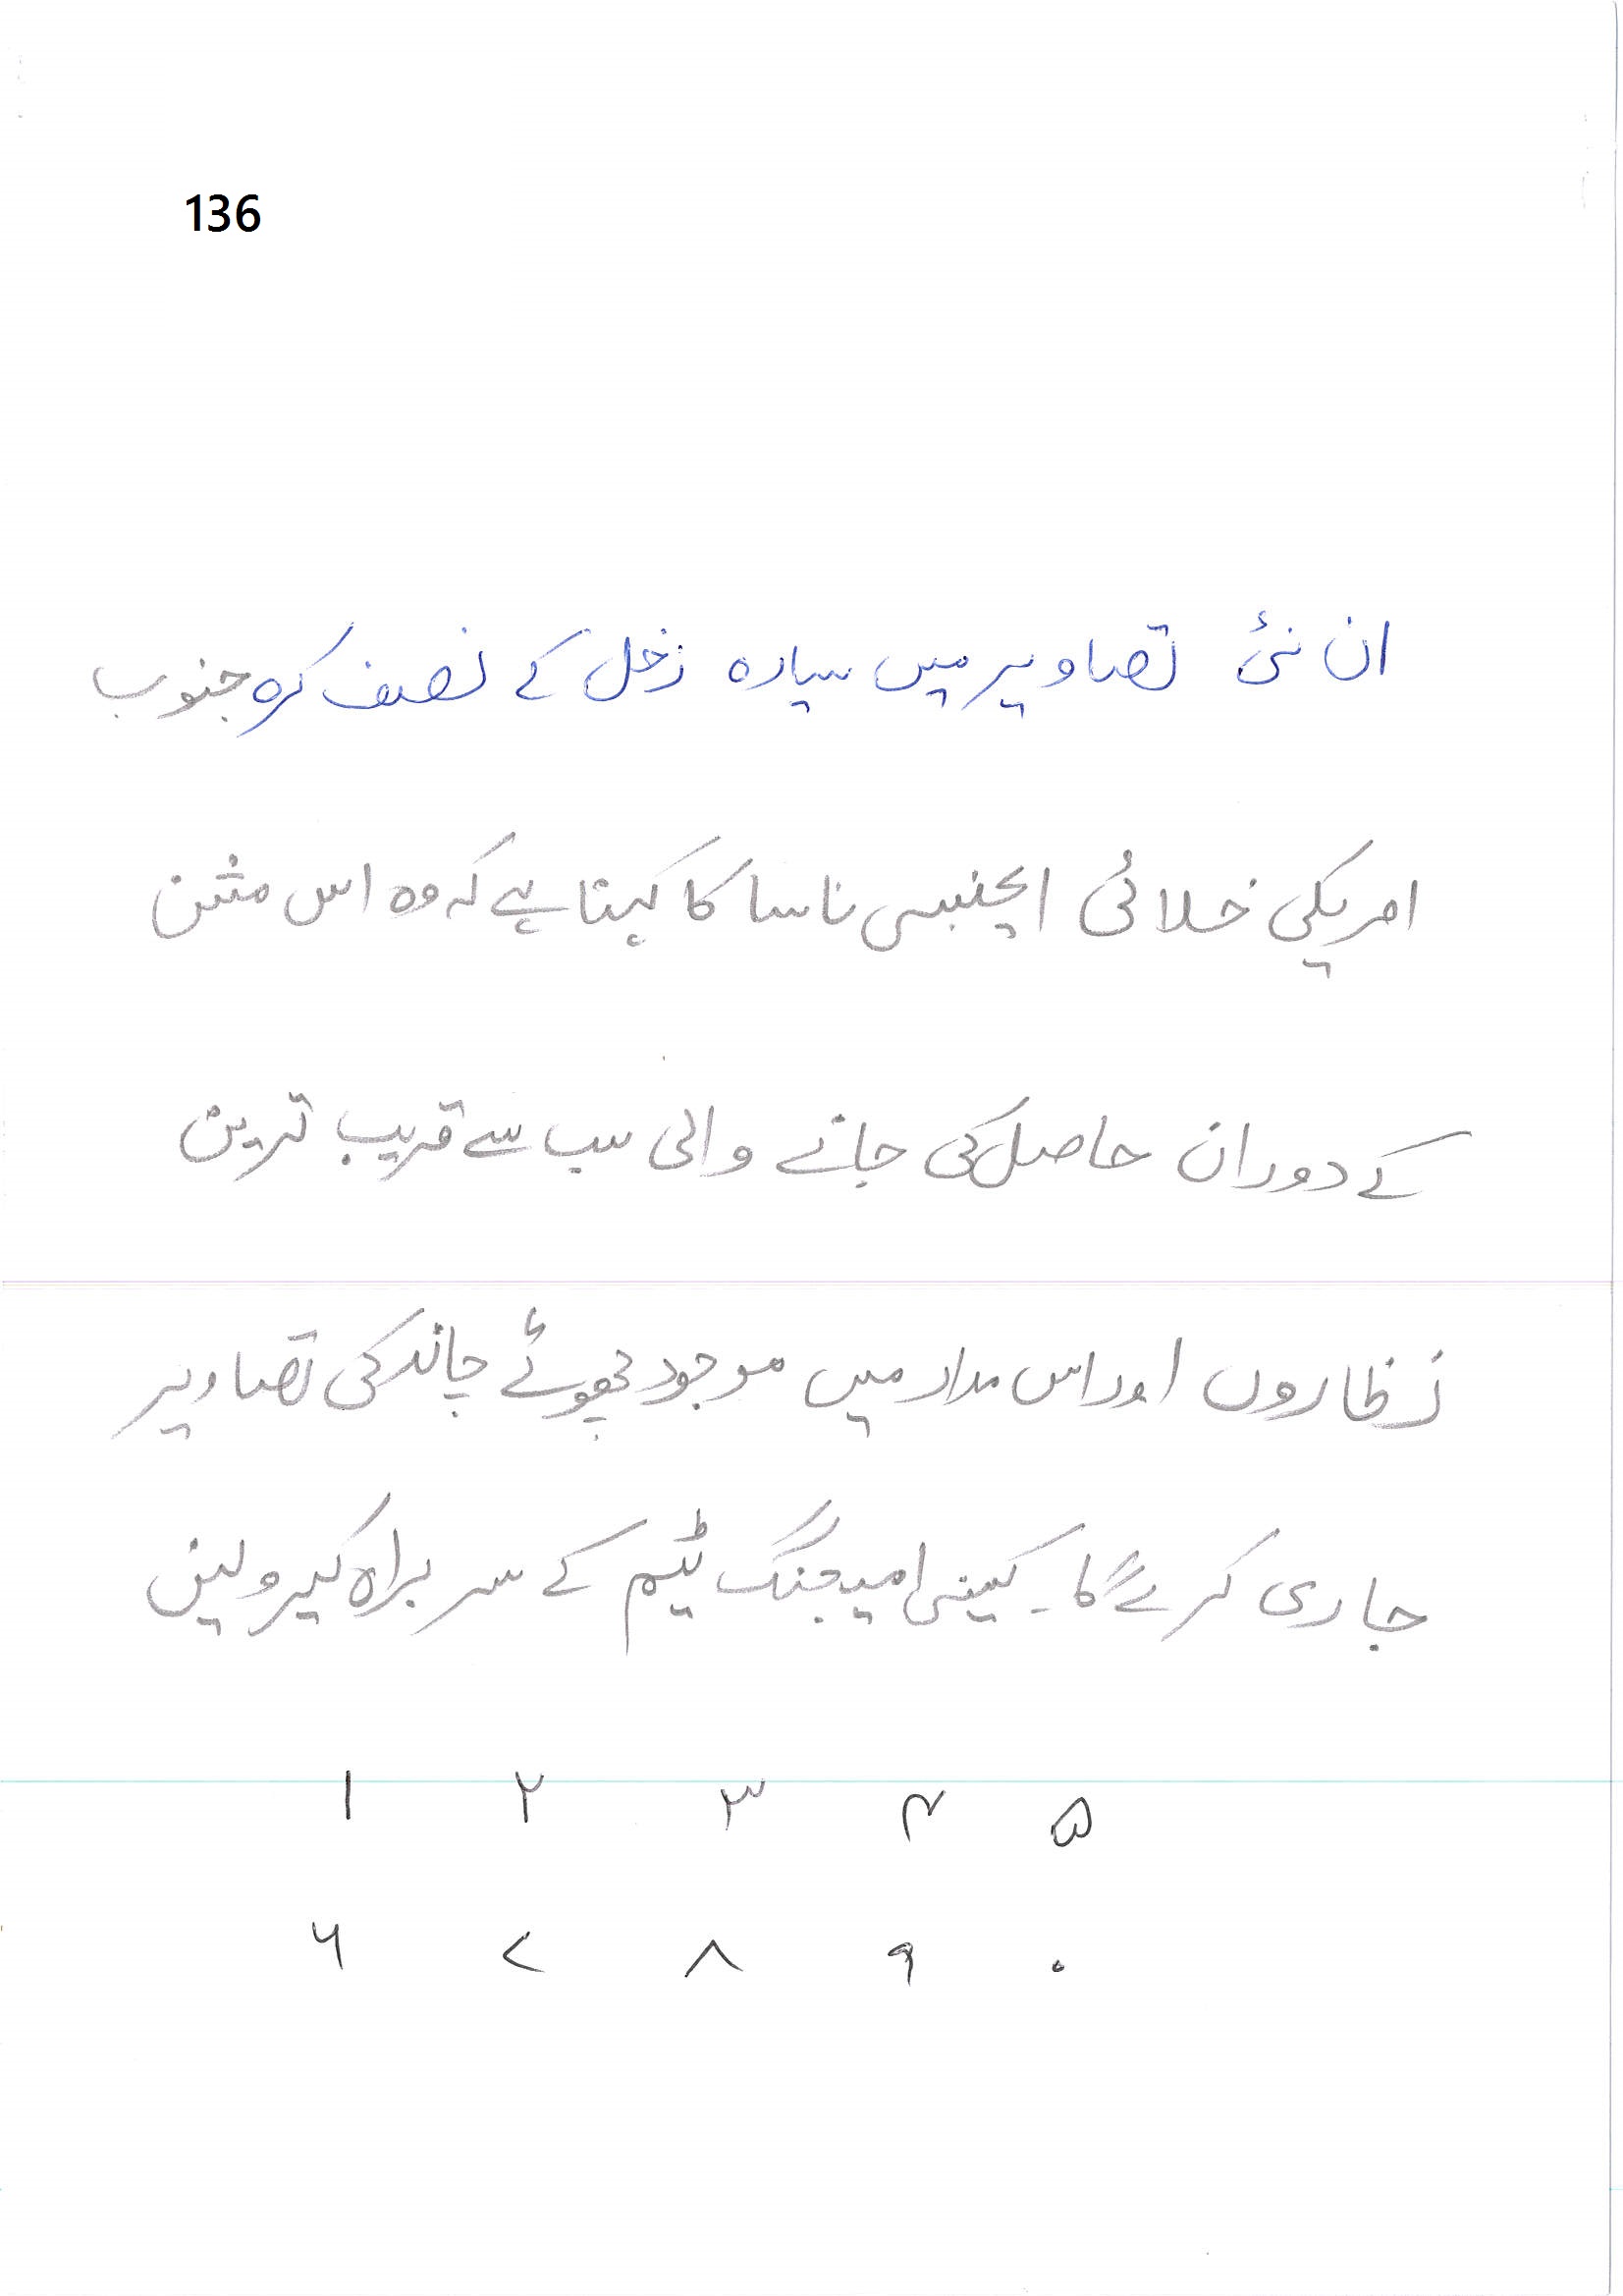 136
ان نئی تصاویر میں سیارہ زخل کے نصف کرہ جنوب
امریکی خلائی ایجنسی ناسا کا کہنا ہے کہ وہ اس مشن
کے دوران حاصل کی جانے والی سب سے قریب ترین
نظاروں اور اس مدار میں موجود چھوئے چاند کی تصاویر
جاری کرے گا۔ کیسنی امیجنگ ٹیم کے سربراہ کیرولین
۱ ۲ ۳ ۴ ۵
۶ ۷ ۸ ۹ ۰